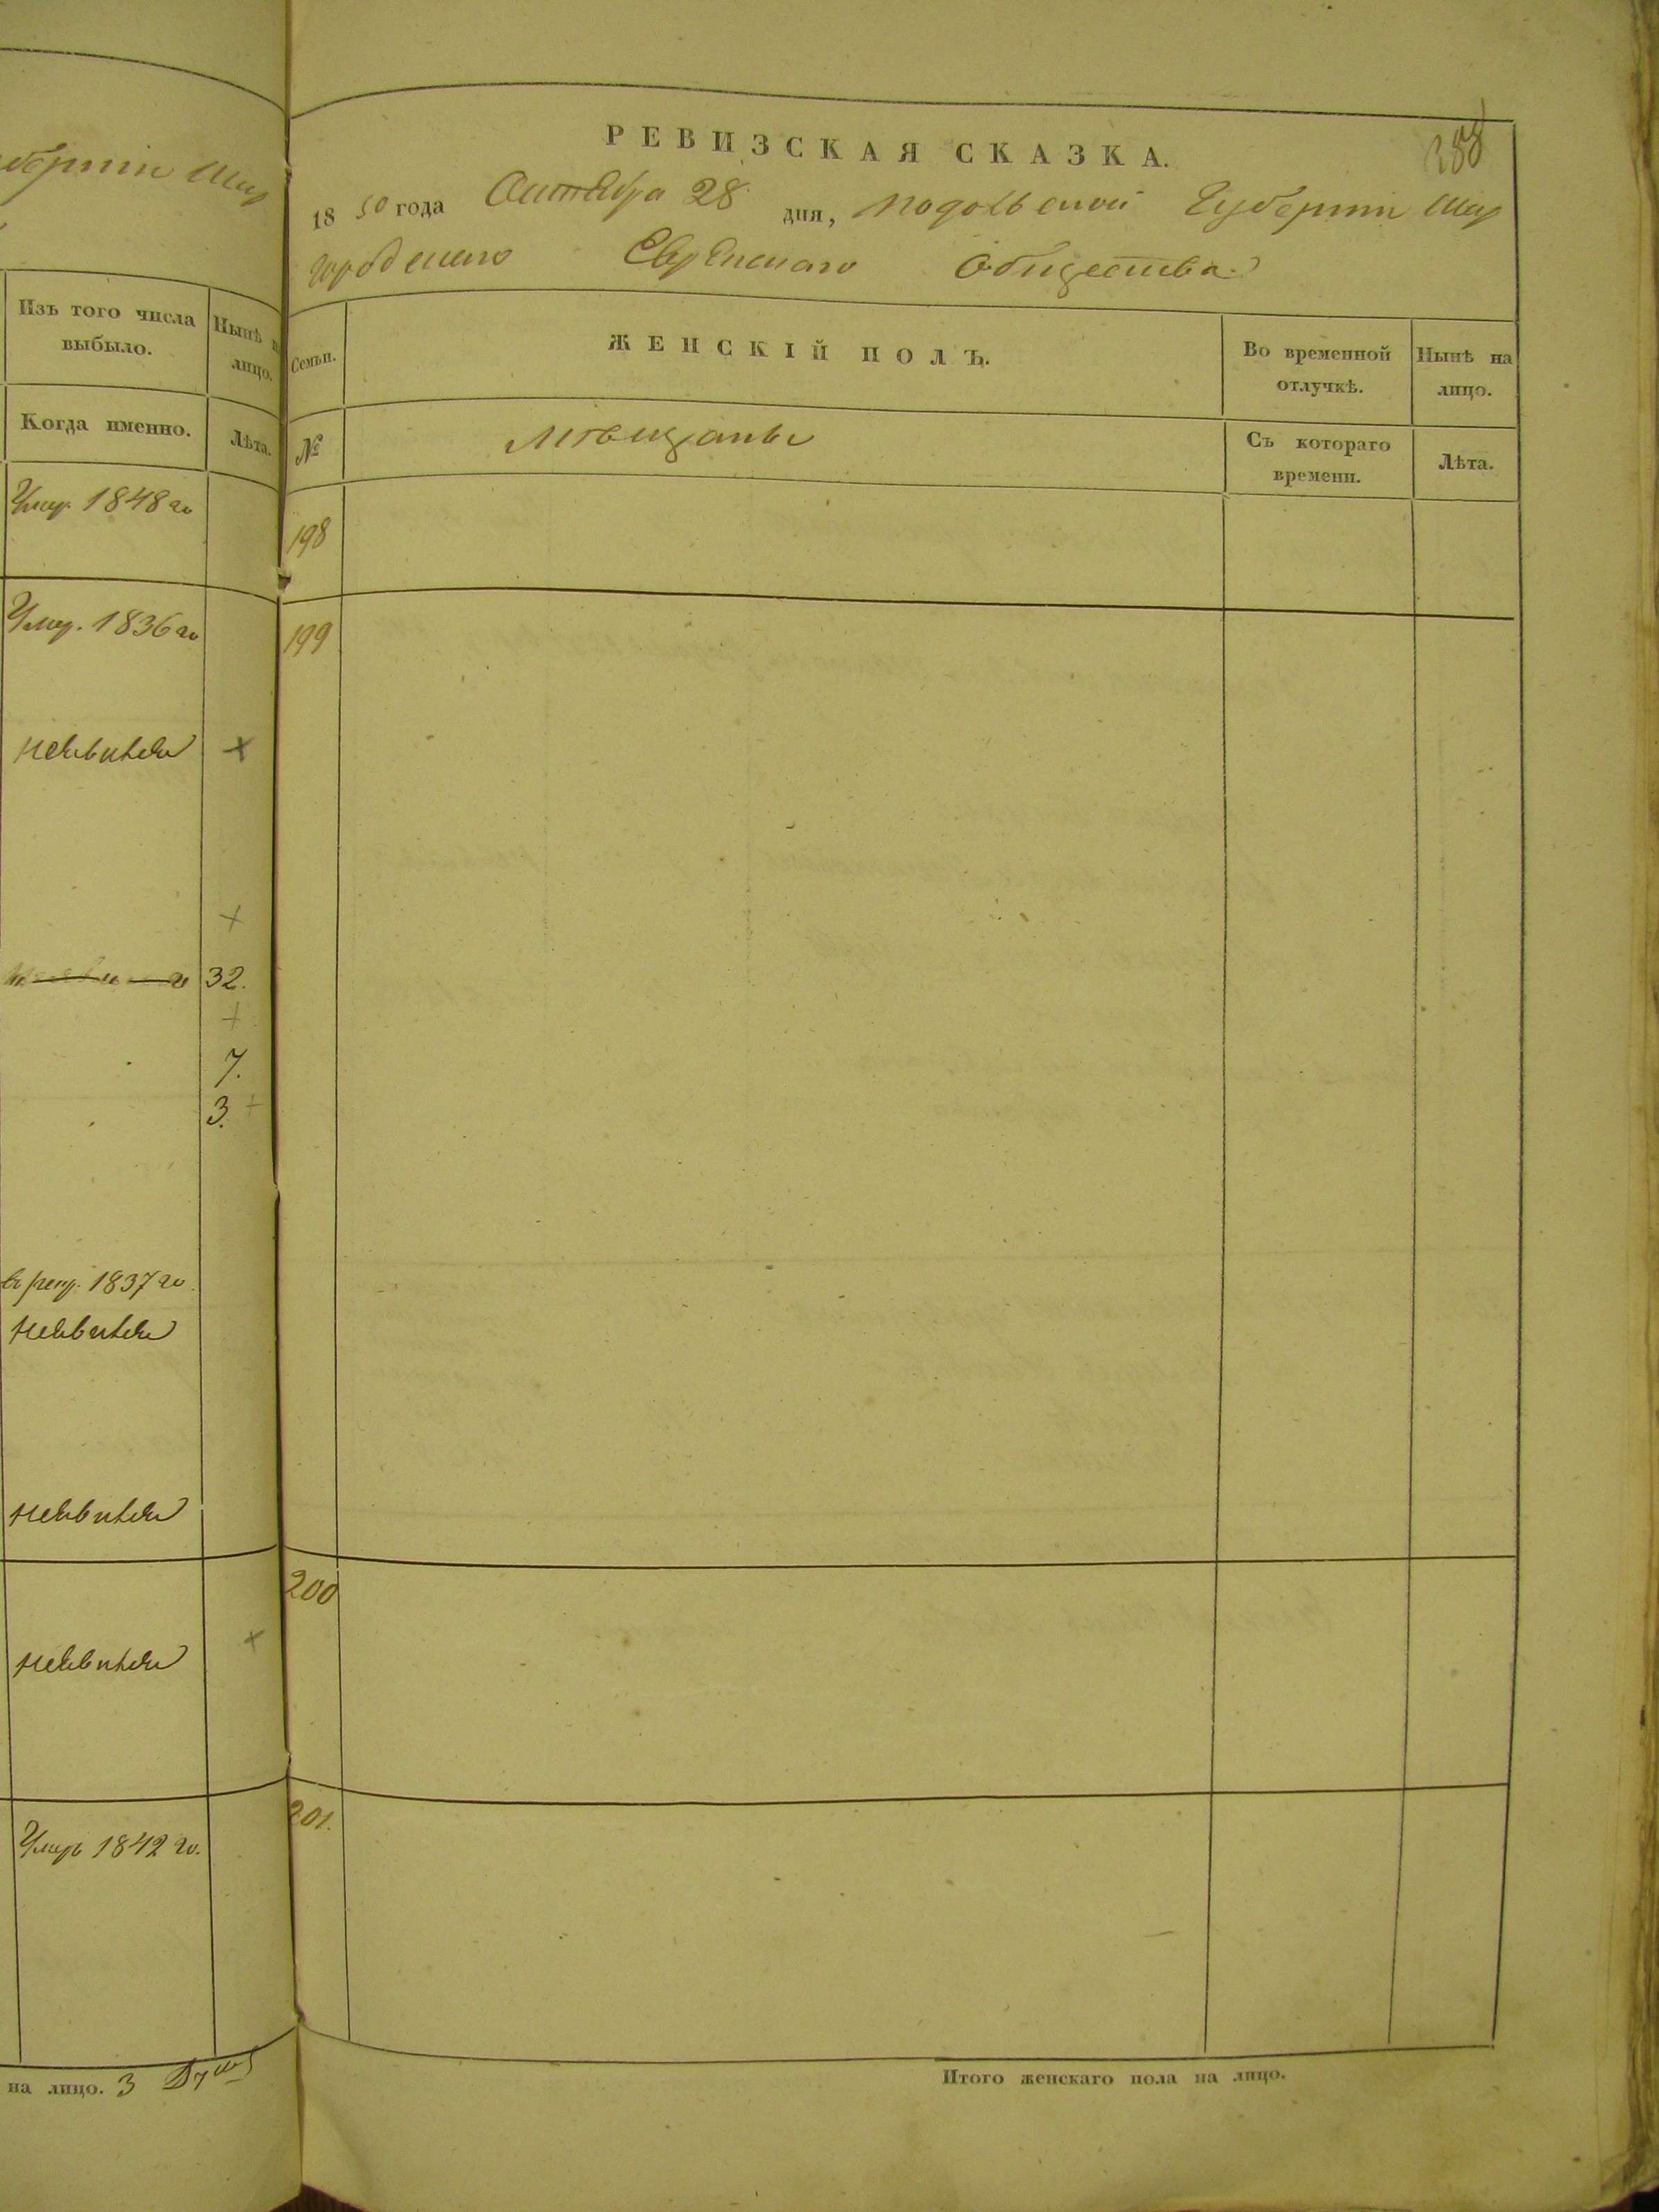 уберніи Шар
Изъ того числа
выбыло.
Нынѣ н
лицо.
Когда именно.
Лѣта.
Умер. 1848 го
Умер. 1836 го
неявился
32.
7.
3.
в рекр. 1837 го
неявился
неявился
неявился
Умеръ 1842 го.
на лицо. 3 Душ
РЕВИЗСКАЯ СКАЗКА.
1850 года Октября 28 дня, Подольской Губерніи Шар
городскаго Еврейскаго Общества
Семьи.
ЖЕНСКІЙ ПОЛЪ.
Во временной
отлучкѣ.
Нынѣ на
лицо.
№
Мѣщане
Съ котораго
времени.
Лѣта.
198
199
200
201.
Итого женскаго пола на лицо.